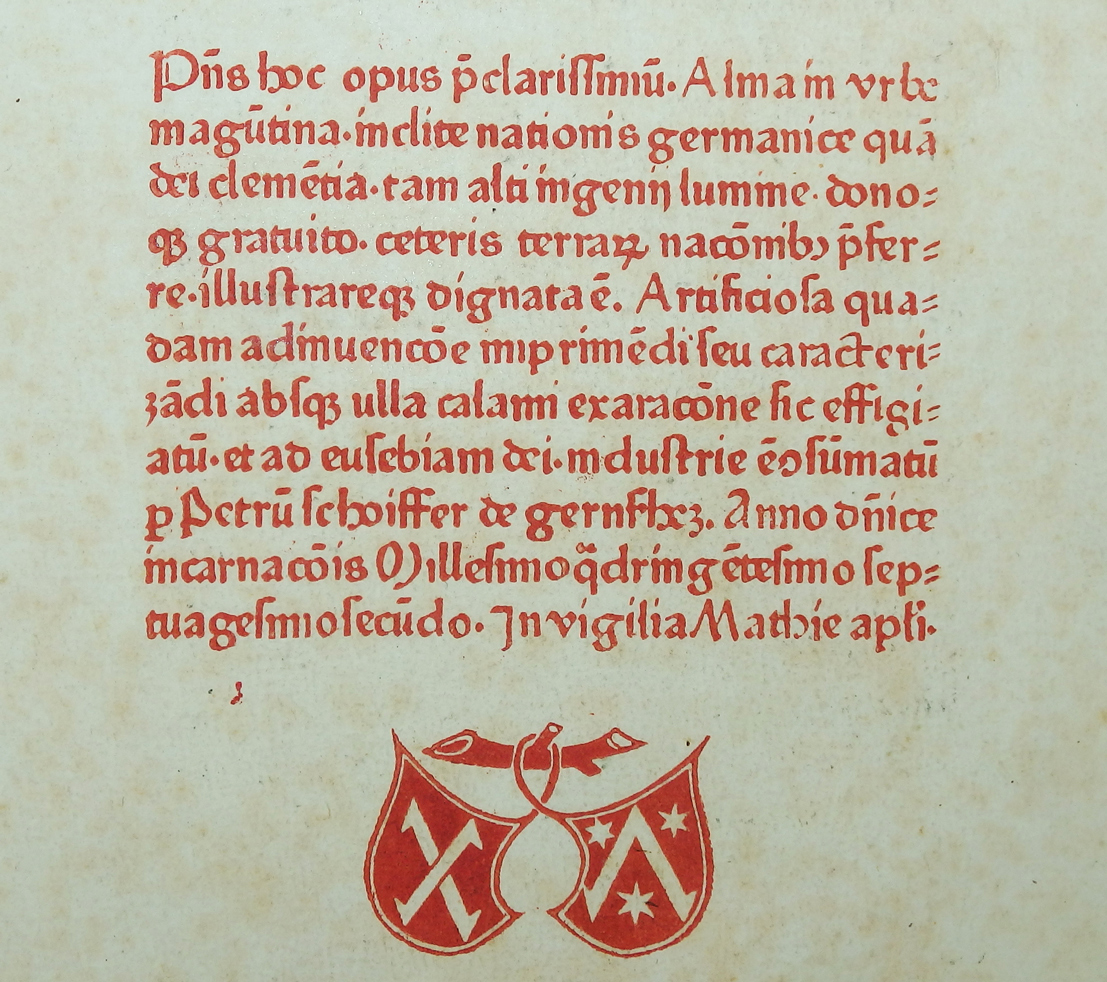 Pn̄s hoc opus p̄clariſſimū. Alma in vrbe
magūtina. inclite nationis germanice quā
dei clemētia. tam alti ingenij lumine. dono⸗
qꝫ gratuito. ceteris terraꝝ nacōnibꝰ p̄fer⸗
re. illuſtrareqꝫ dignata ē. Artificioſa qua⸗
dam adinuencōe imprimēdi ſeu caracteri⸗
zādi abſqꝫ ulla calami exaracōne ſic effigi⸗
atū. et ad euſebiam dei. induſtrie ē ꝯſūmatū
ꝑ Petrū ſchoiffer de gernſheꝫ. Anno dn̄ice
incarnacōis Milleſimo qͣdringēteſimo ſep⸗
tuageſimoſecūdo. In vigilia Mathie apľi.